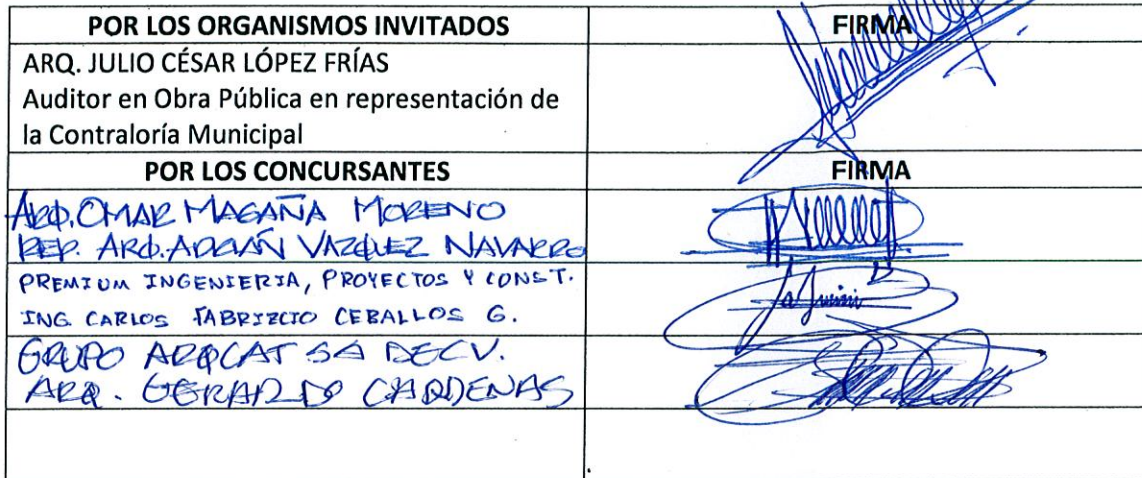 POR LOS ORGANISMOS INVITADOS FIRMA
ARQ. JULIO CÉSAR LÓPEZ FRÍAS
Auditor en Obra Pública en representación de
la Contraloría Municipal
POR LOS CONCURSANTES FIRMA
ARQ. OMAR MAGAÑA MORENO
REP. ARQ. ADRIÁN VAZQUEZ NAVARRO
PREMIUM INGENIERIA, PROYECTOS Y CONST.
ING. CARLOS FABRIZCIO CEBALLOS G.
GRUPO ARQCAT SA DE CV.
ARQ. GERARDO CARDENAS